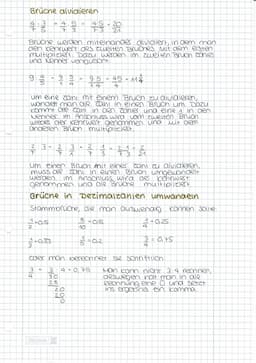 Brüche dividieren
Brüche werden miteinander dividiert, in dem man
den Kehrwert des zweiten Bruches mit dem ersten
multipliziert. Dazu werden im zweiten Bruch Zähler
und Nenner vertauscht.
Um eine Zahl mit einem Bruch zu dividieren,
wandelt man die Zahl in einen Bruch um. Dazu
kommt die Zahl in den Zähler und eine 1 in den
Nenner. Im Anschluss wird vom zweiten Bruch
wieder der Kehrwert genommen und mit dem
anderen Bruch multipliziert.
Um einen Bruch mit einer Zahl zu dividieren,
muss die Zahl in einen Bruch umgewandelt
werden. Im Anschluss wird der Kehrwert
genommen und die Brüche multipliziert.
Brüche in Dezimalzahlen umwandeln
Stammbrüche, die man auswendig können sollte:
1/2 = 0,5
1/4 = 0,25
1/5 = 0,2
3/4 = 0,75
oder man berechnet sie schriftlich
3/4 = 3 : 4 = 0,75
Man kann nicht 3:4 rechnen,
deswegen holt man in die
Rechnung eine 0 und setzt
ins Ergebnis ein Komma.